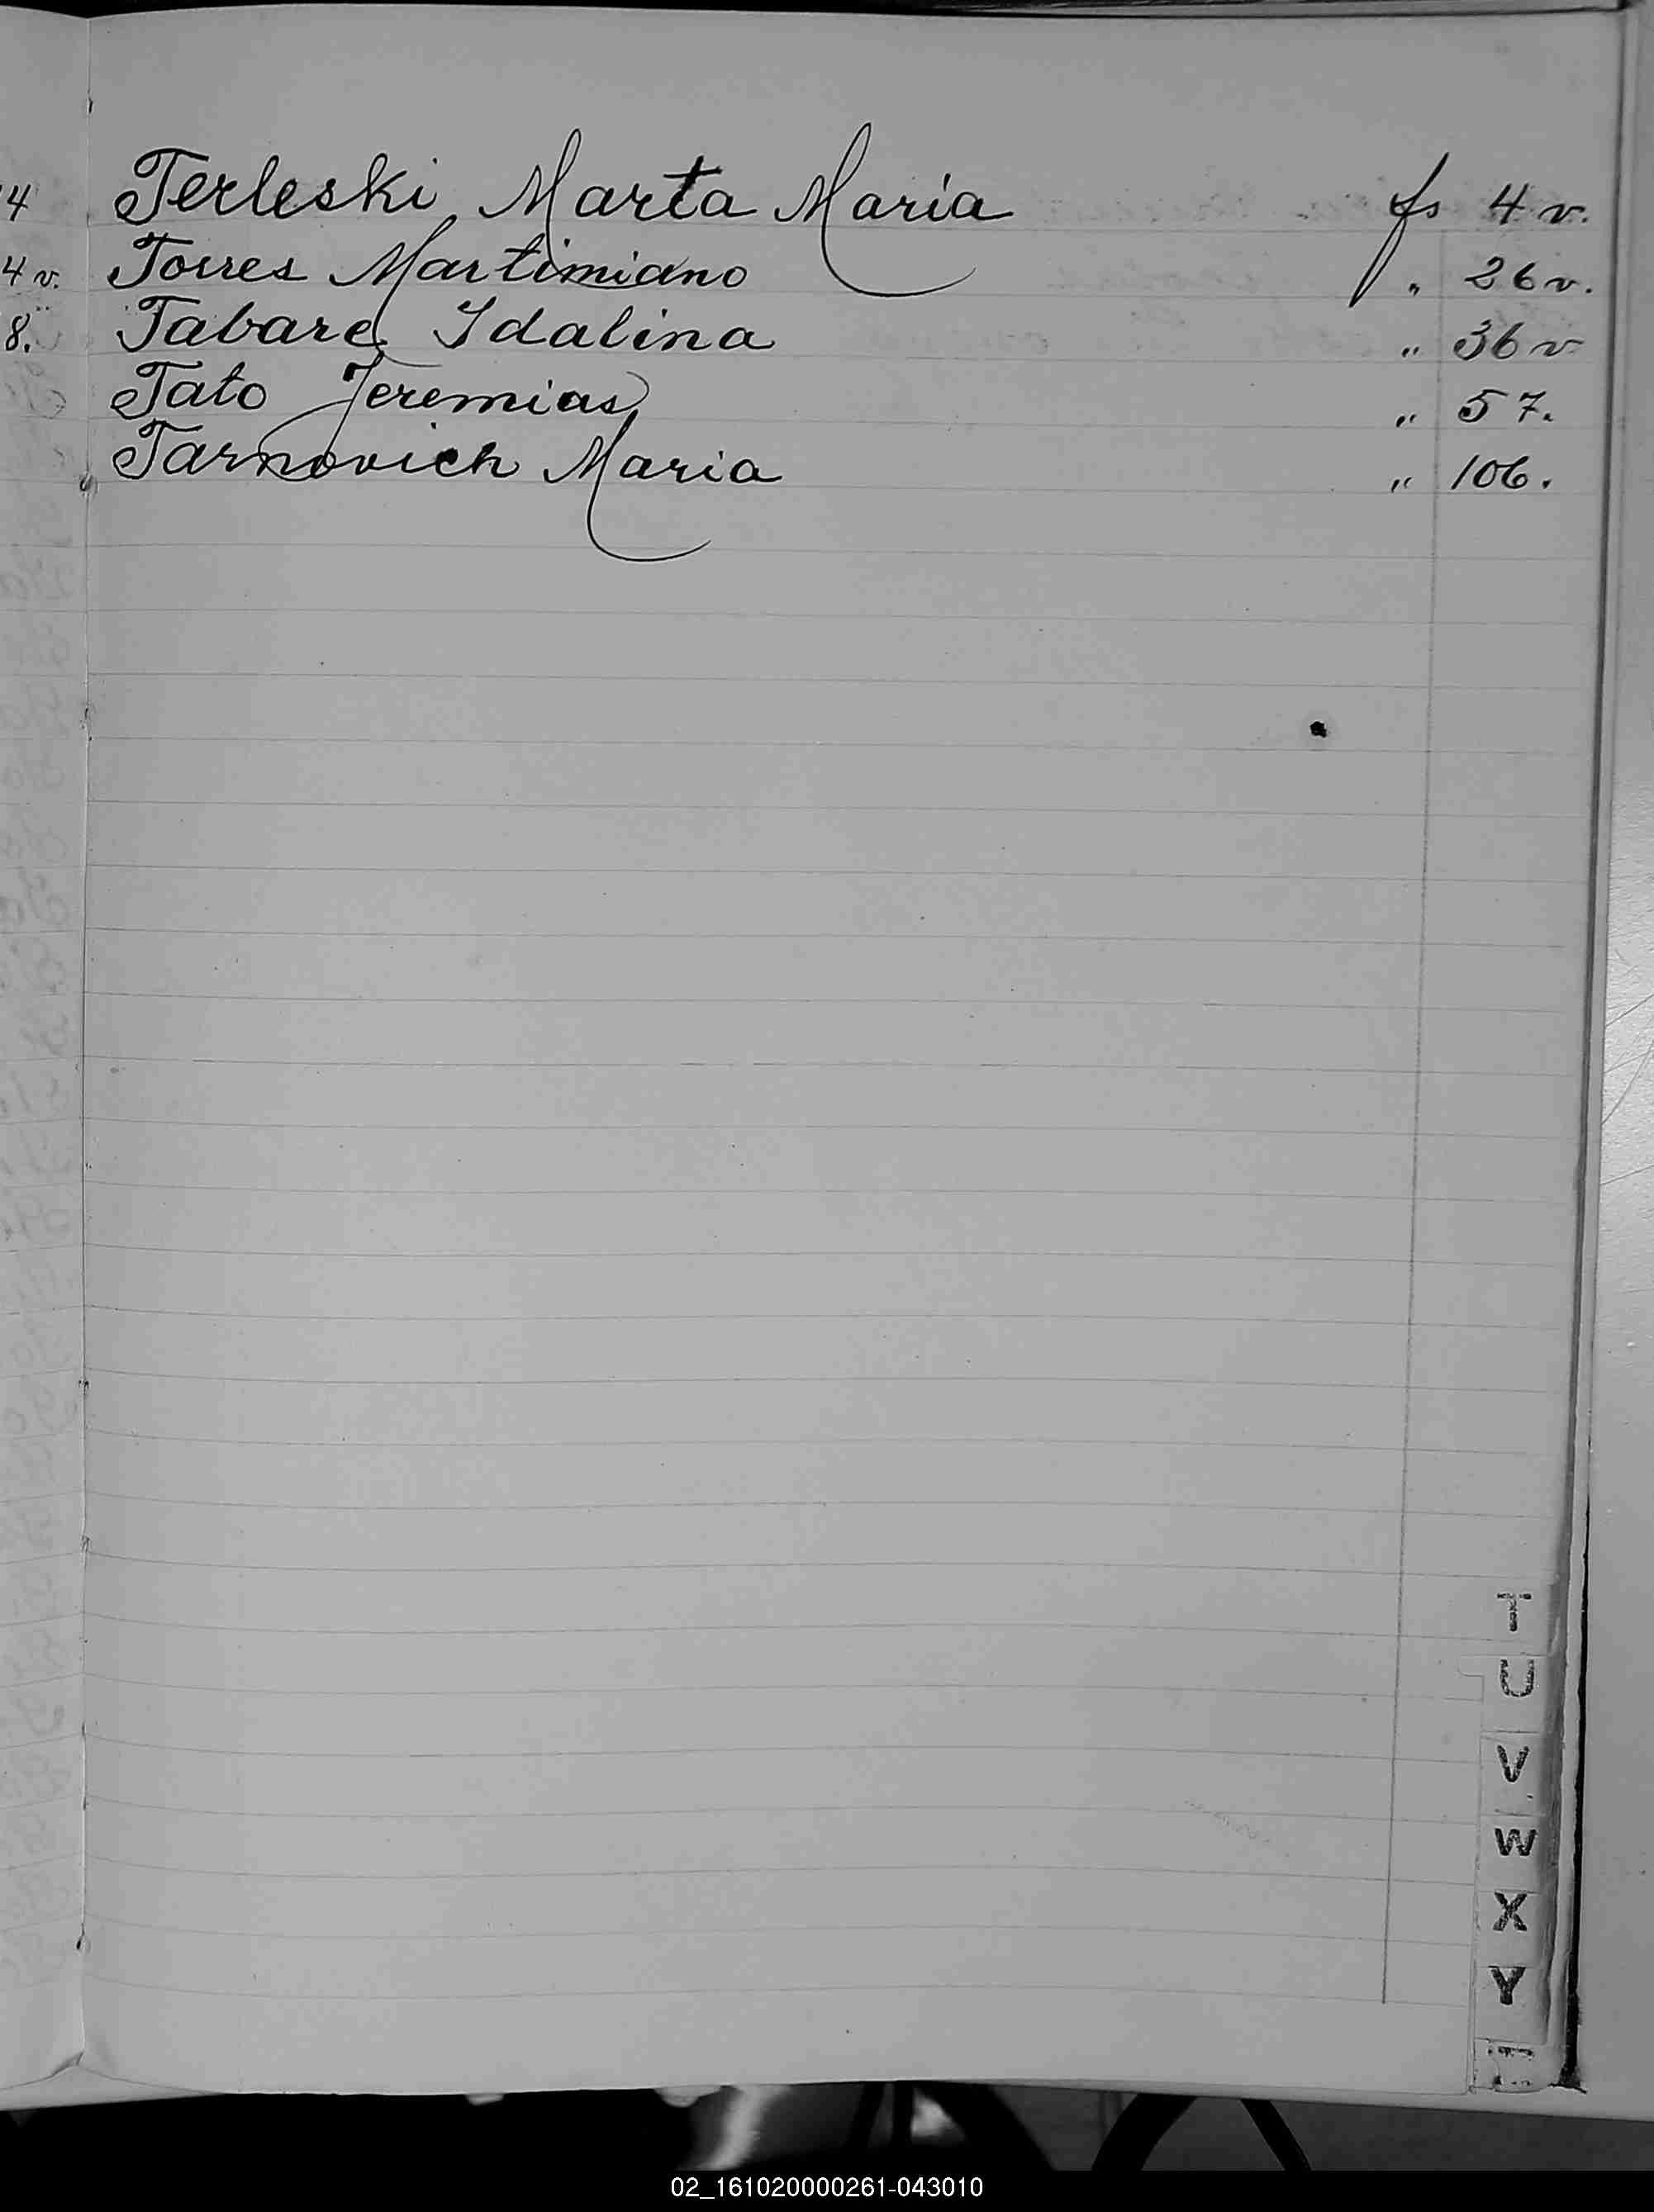 4 Terleski Marta Maria fs 4 v.
4 v. Torres Martimiano " 26 v.
8. Tabare Idalina " 36 v
Tato Jeremias " 57.
Tarnovich Maria " 106.
T
U
V
W
X
Y
02_161020000261-043010